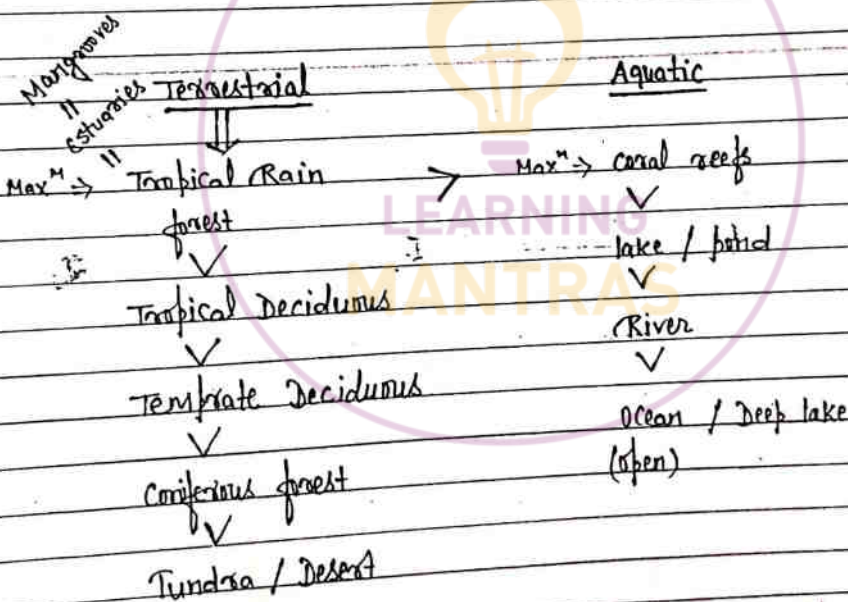 Mangrooves
=
Estuaries
=
Terrestrial
⇓
Max^m ⇒ Tropical Rain
forest
∨
Tropical Deciduous
∨
Temprate Deciduous
∨
Coniferious forest
∨
Tundra / Desert
>
Aquatic
Max^m ⇒ coral reefs
∨
lake / pond
∨
River
∨
Ocean / Deep lake
(open)
LEARNING
MANTRAS